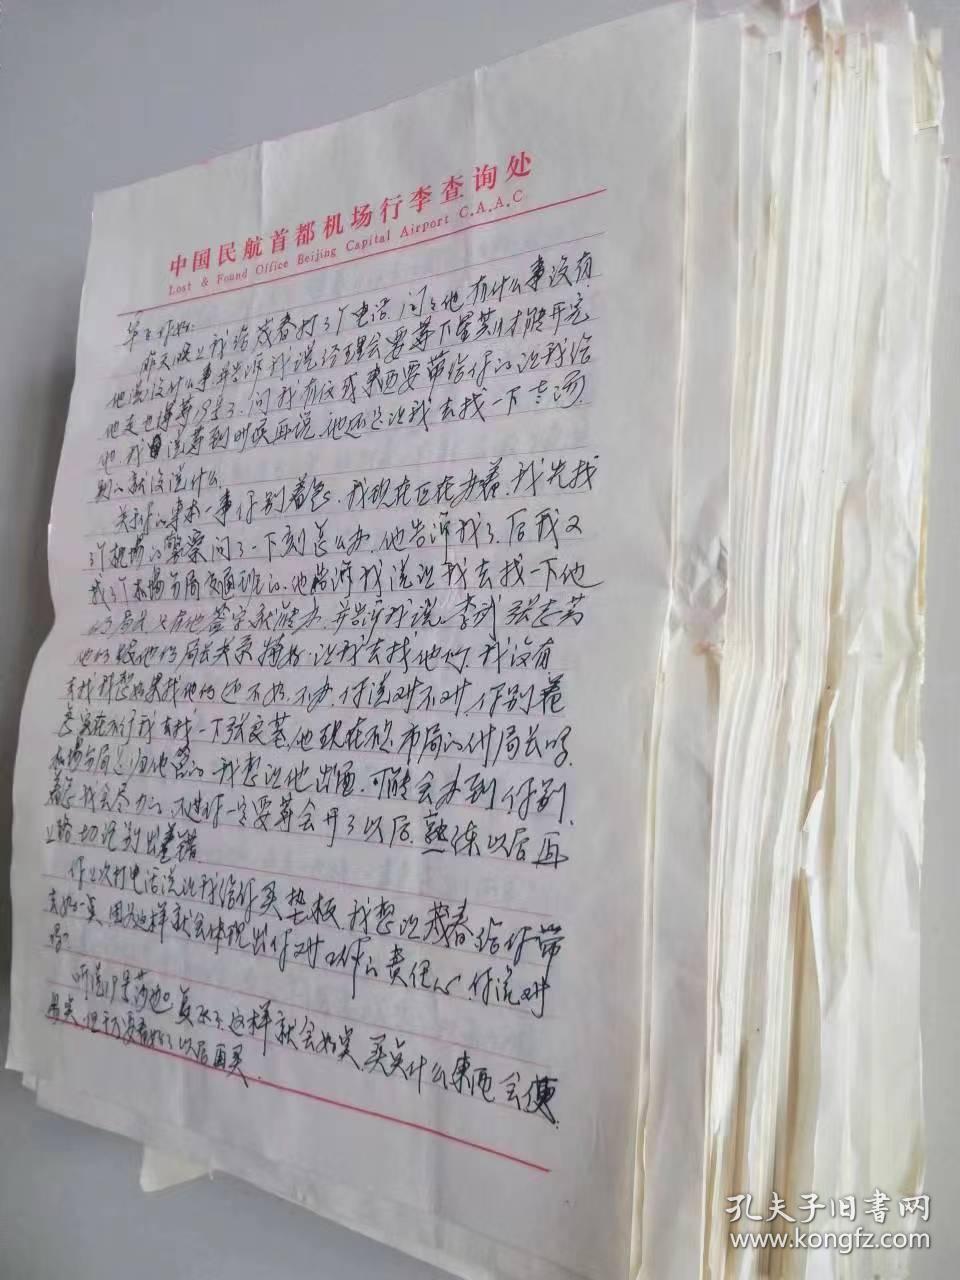 中国民航首都机场行李查询处
Lost & Found Office Beijing Capital Airport C.A.A.C
你好：
昨天晚上我给茂春打了个电话，问了他有什么事没有，
他说没什么事并告诉我说经理会要等下星期才能开完
他走也得等19号了，问我有没有东西要带给你的让我给
他，我说等到时候再说，他还是让我去找一下
别的就没说什么。
关于你的事本一事你别着急，我现在正在办着，我先找
了个机场的警察问了一下到怎么办，他告诉我了，后我又
找了个机场分局交通班的，他告诉我说让我去找一下他
的局长只有他签字就能办，并告诉我说，李武张志芳
他们跟他们局长关系挺好，让我去找他们，我没有
去找我想如果找他们还不如不办，你说对不对，你别着
急实在不行我去找一下张良基，他现在不是市局的付局长吗，
机场分局是归他管的，我想让他出面，可能会办到，你别
着急我会尽力的，不过你一定要等会开了以后，熟练以后再
上路，切记别出差错。
你上次打电话说让我给你买垫板，我想让茂春给你带
去好一点，因为这样就会体现出你对工作的责任心，你说对
吗？
听说19号莎也复水了，这样就会好点，买点什么东西会便
易点，但千万要看好了以后再买。
孔夫子旧书网
www.kongfz.com